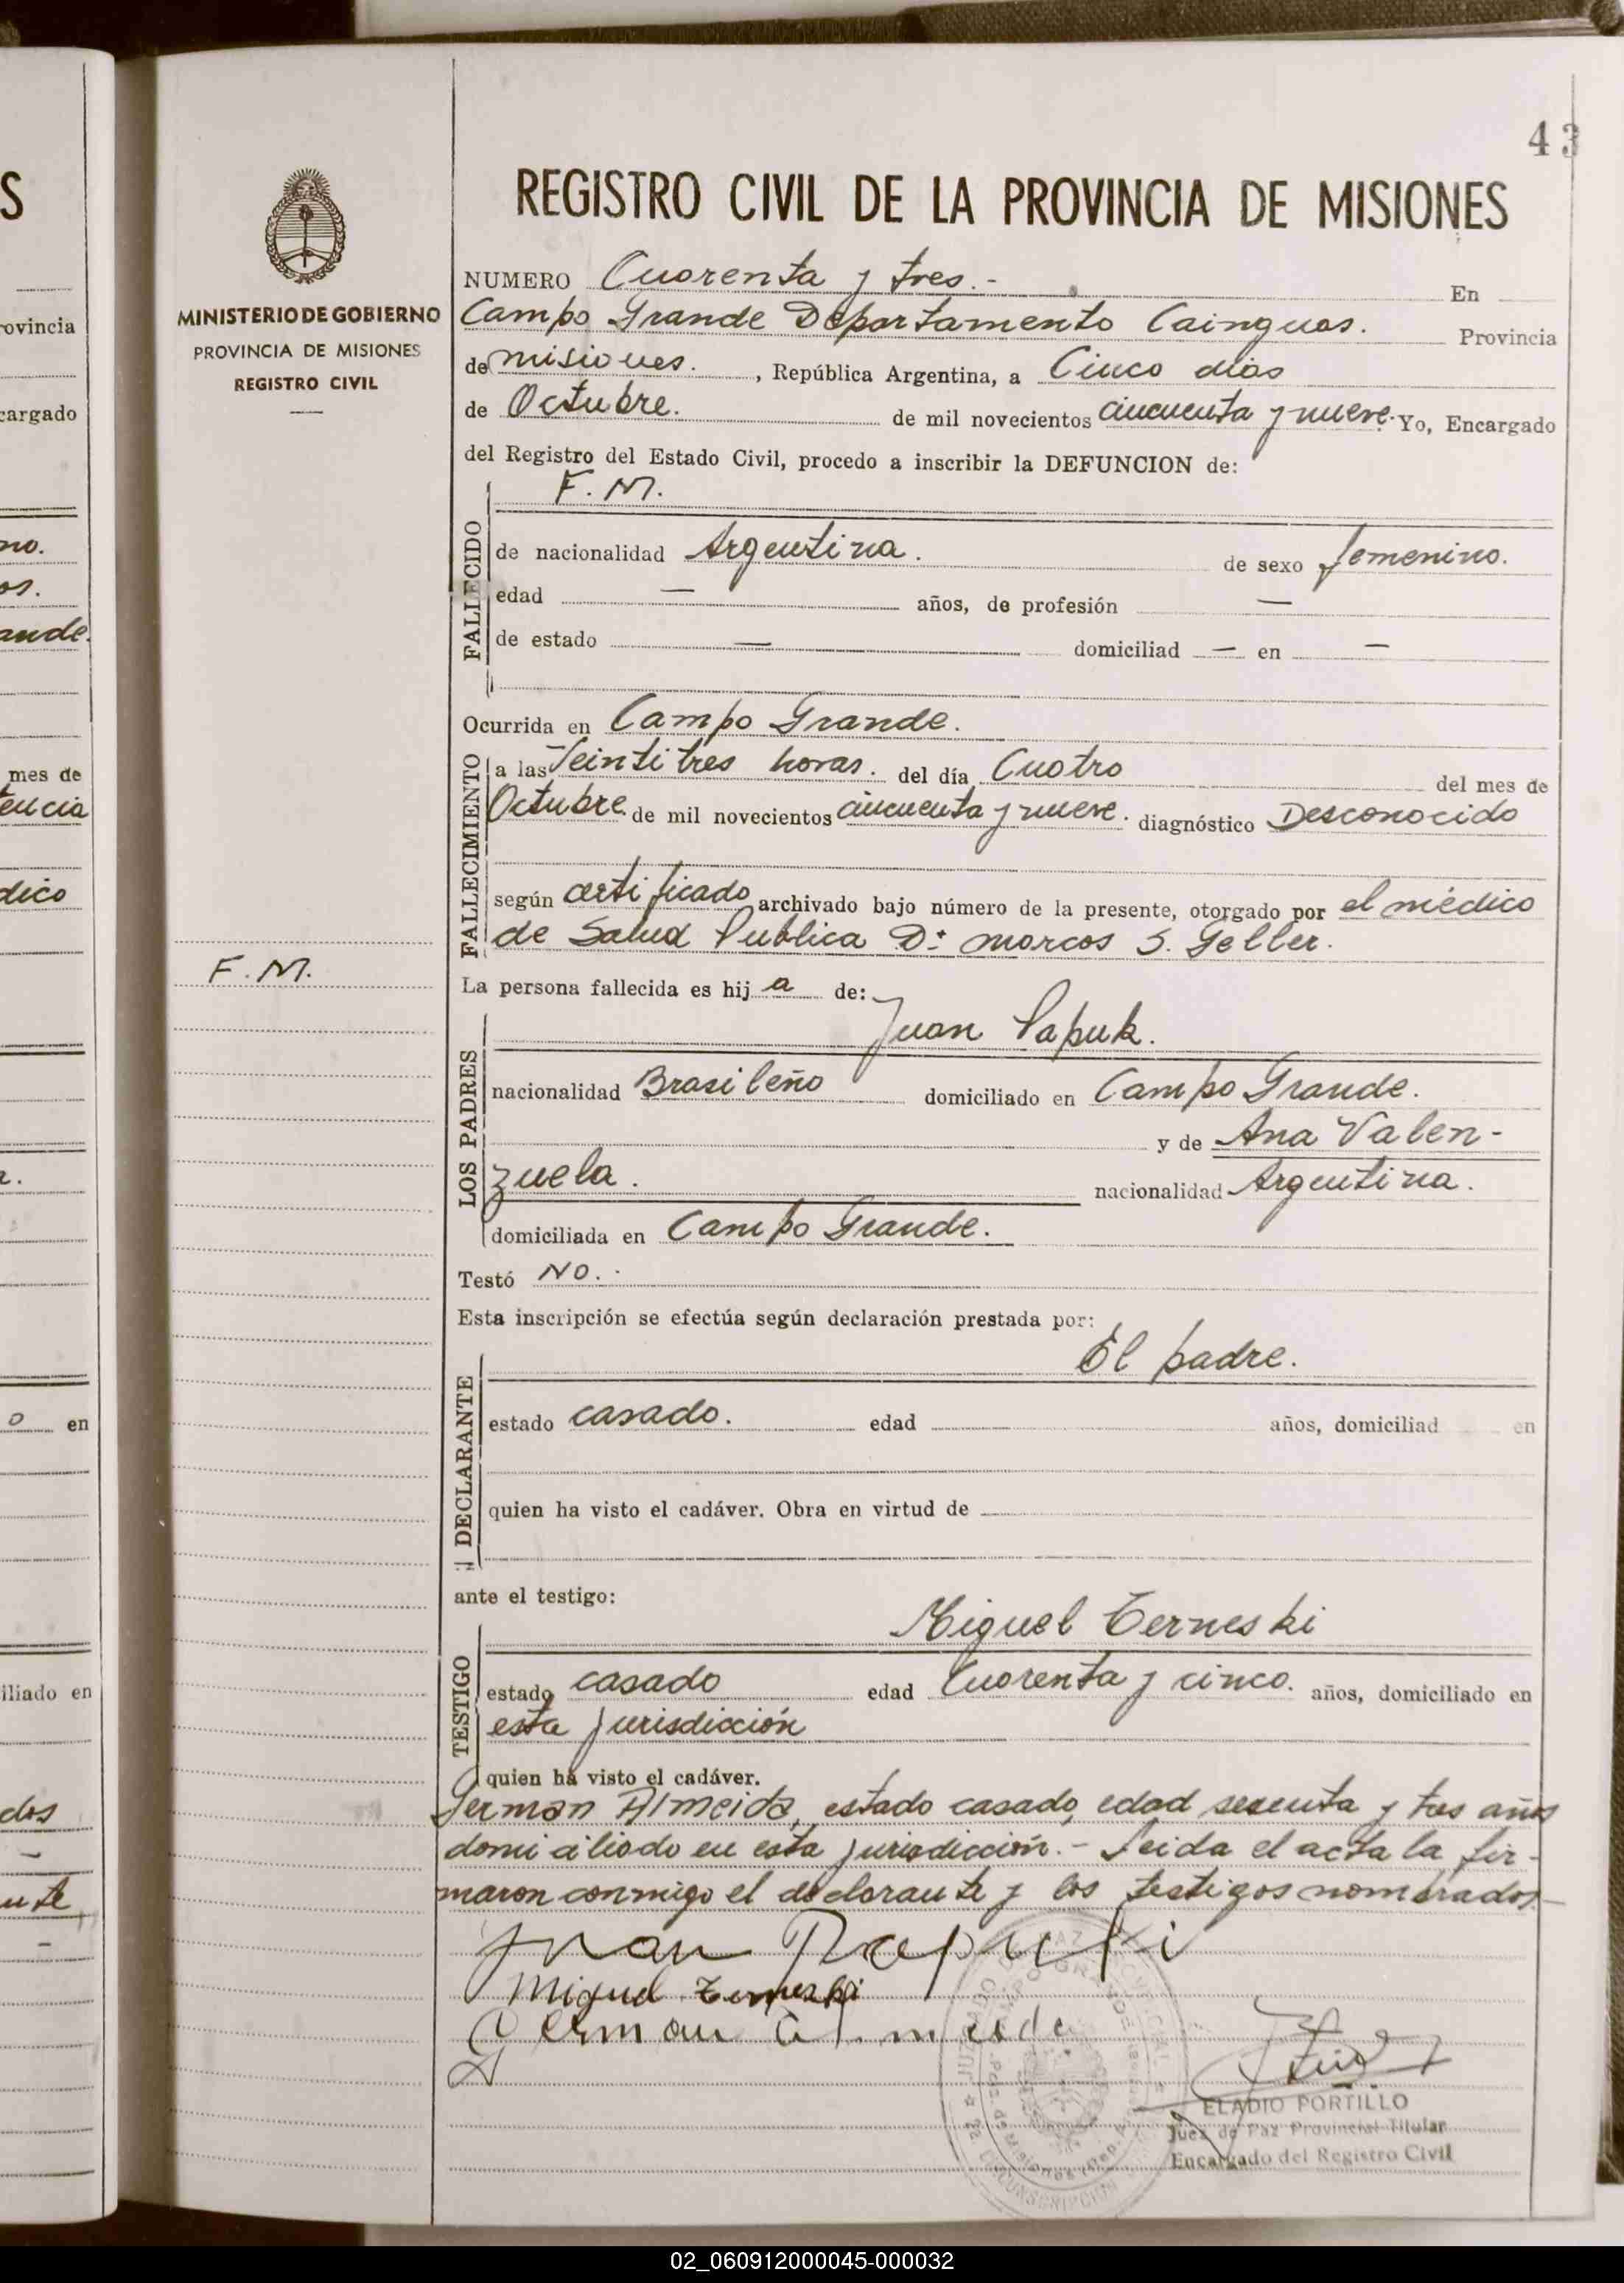 43
REGISTRO CIVIL DE LA PROVINCIA DE MISIONES
MINISTERIO DE GOBIERNO
PROVINCIA DE MISIONES
REGISTRO CIVIL
NUMERO Cuarenta y tres.- En
Campo Grande Departamento Cainguas. Provincia
de misiones. , República Argentina, a Cinco dias
de Octubre. de mil novecientos cincuenta y nueve. Yo, Encargado
del Registro del Estado Civil, procedo a inscribir la DEFUNCION de:
F. M.
FALLECIDO
de nacionalidad Argentina. de sexo femenino.
edad — años, de profesión —
de estado — domiciliad — en —
Ocurrida en Campo Grande.
FALLECIMIENTO
a las Veintitres horas. del día Cuatro del mes de
Octubre. de mil novecientos cincuenta y nueve. diagnóstico Desconocido
según certificado archivado bajo número de la presente, otorgado por el médico
de Salud Publica Dr. marcos S. Geller.
F. M.
La persona fallecida es hija de:
LOS PADRES
Juan Papuk.
nacionalidad Brasileño domiciliado en Campo Grande.
y de Ana Valen-
zuela. nacionalidad Argentina.
domiciliada en Campo Grande.
Testó No.
Esta inscripción se efectúa según declaración prestada por:
DECLARANTE
El padre.
estado casado. edad años, domiciliad en
quien ha visto el cadáver. Obra en virtud de
ante el testigo:
TESTIGO
Miguel Terneski
estado casado edad Cuarenta y cinco. años, domiciliado en
esta jurisdicción
quien ha visto el cadáver.
German Almeida, estado casado, edad sesenta y tres años
domiciliado en esta jurisdicción.- Leida el acta la fir-
maron conmigo el declarante y los testigos nombrados.-
Juan
Miguel Terneski
German Almeida
ELADIO PORTILLO
Juez de Paz Provincial Titular
Encargado del Registro Civil
02_060912000045-000032